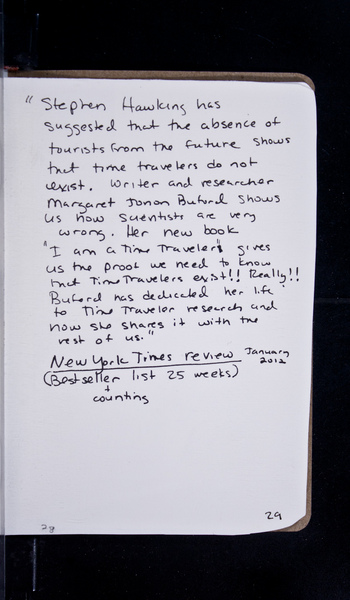 "Stephen Hawking has
suggested that the absence of
tourists from the future shows
that time travelers do not
exist. Writer and researcher
Margaret Jonon Buford shows
us how scientists are very
wrong. Her new book
"I am a Time Traveler" gives
us the proof we need to know
that Time Travelers exist!! Really!!
Buford has dedicated her life
to Time Traveler research and
now she shares it with the
rest of us."
New York Times review January
2012
(Bestseller list 25 weeks)
+
counting
29
28